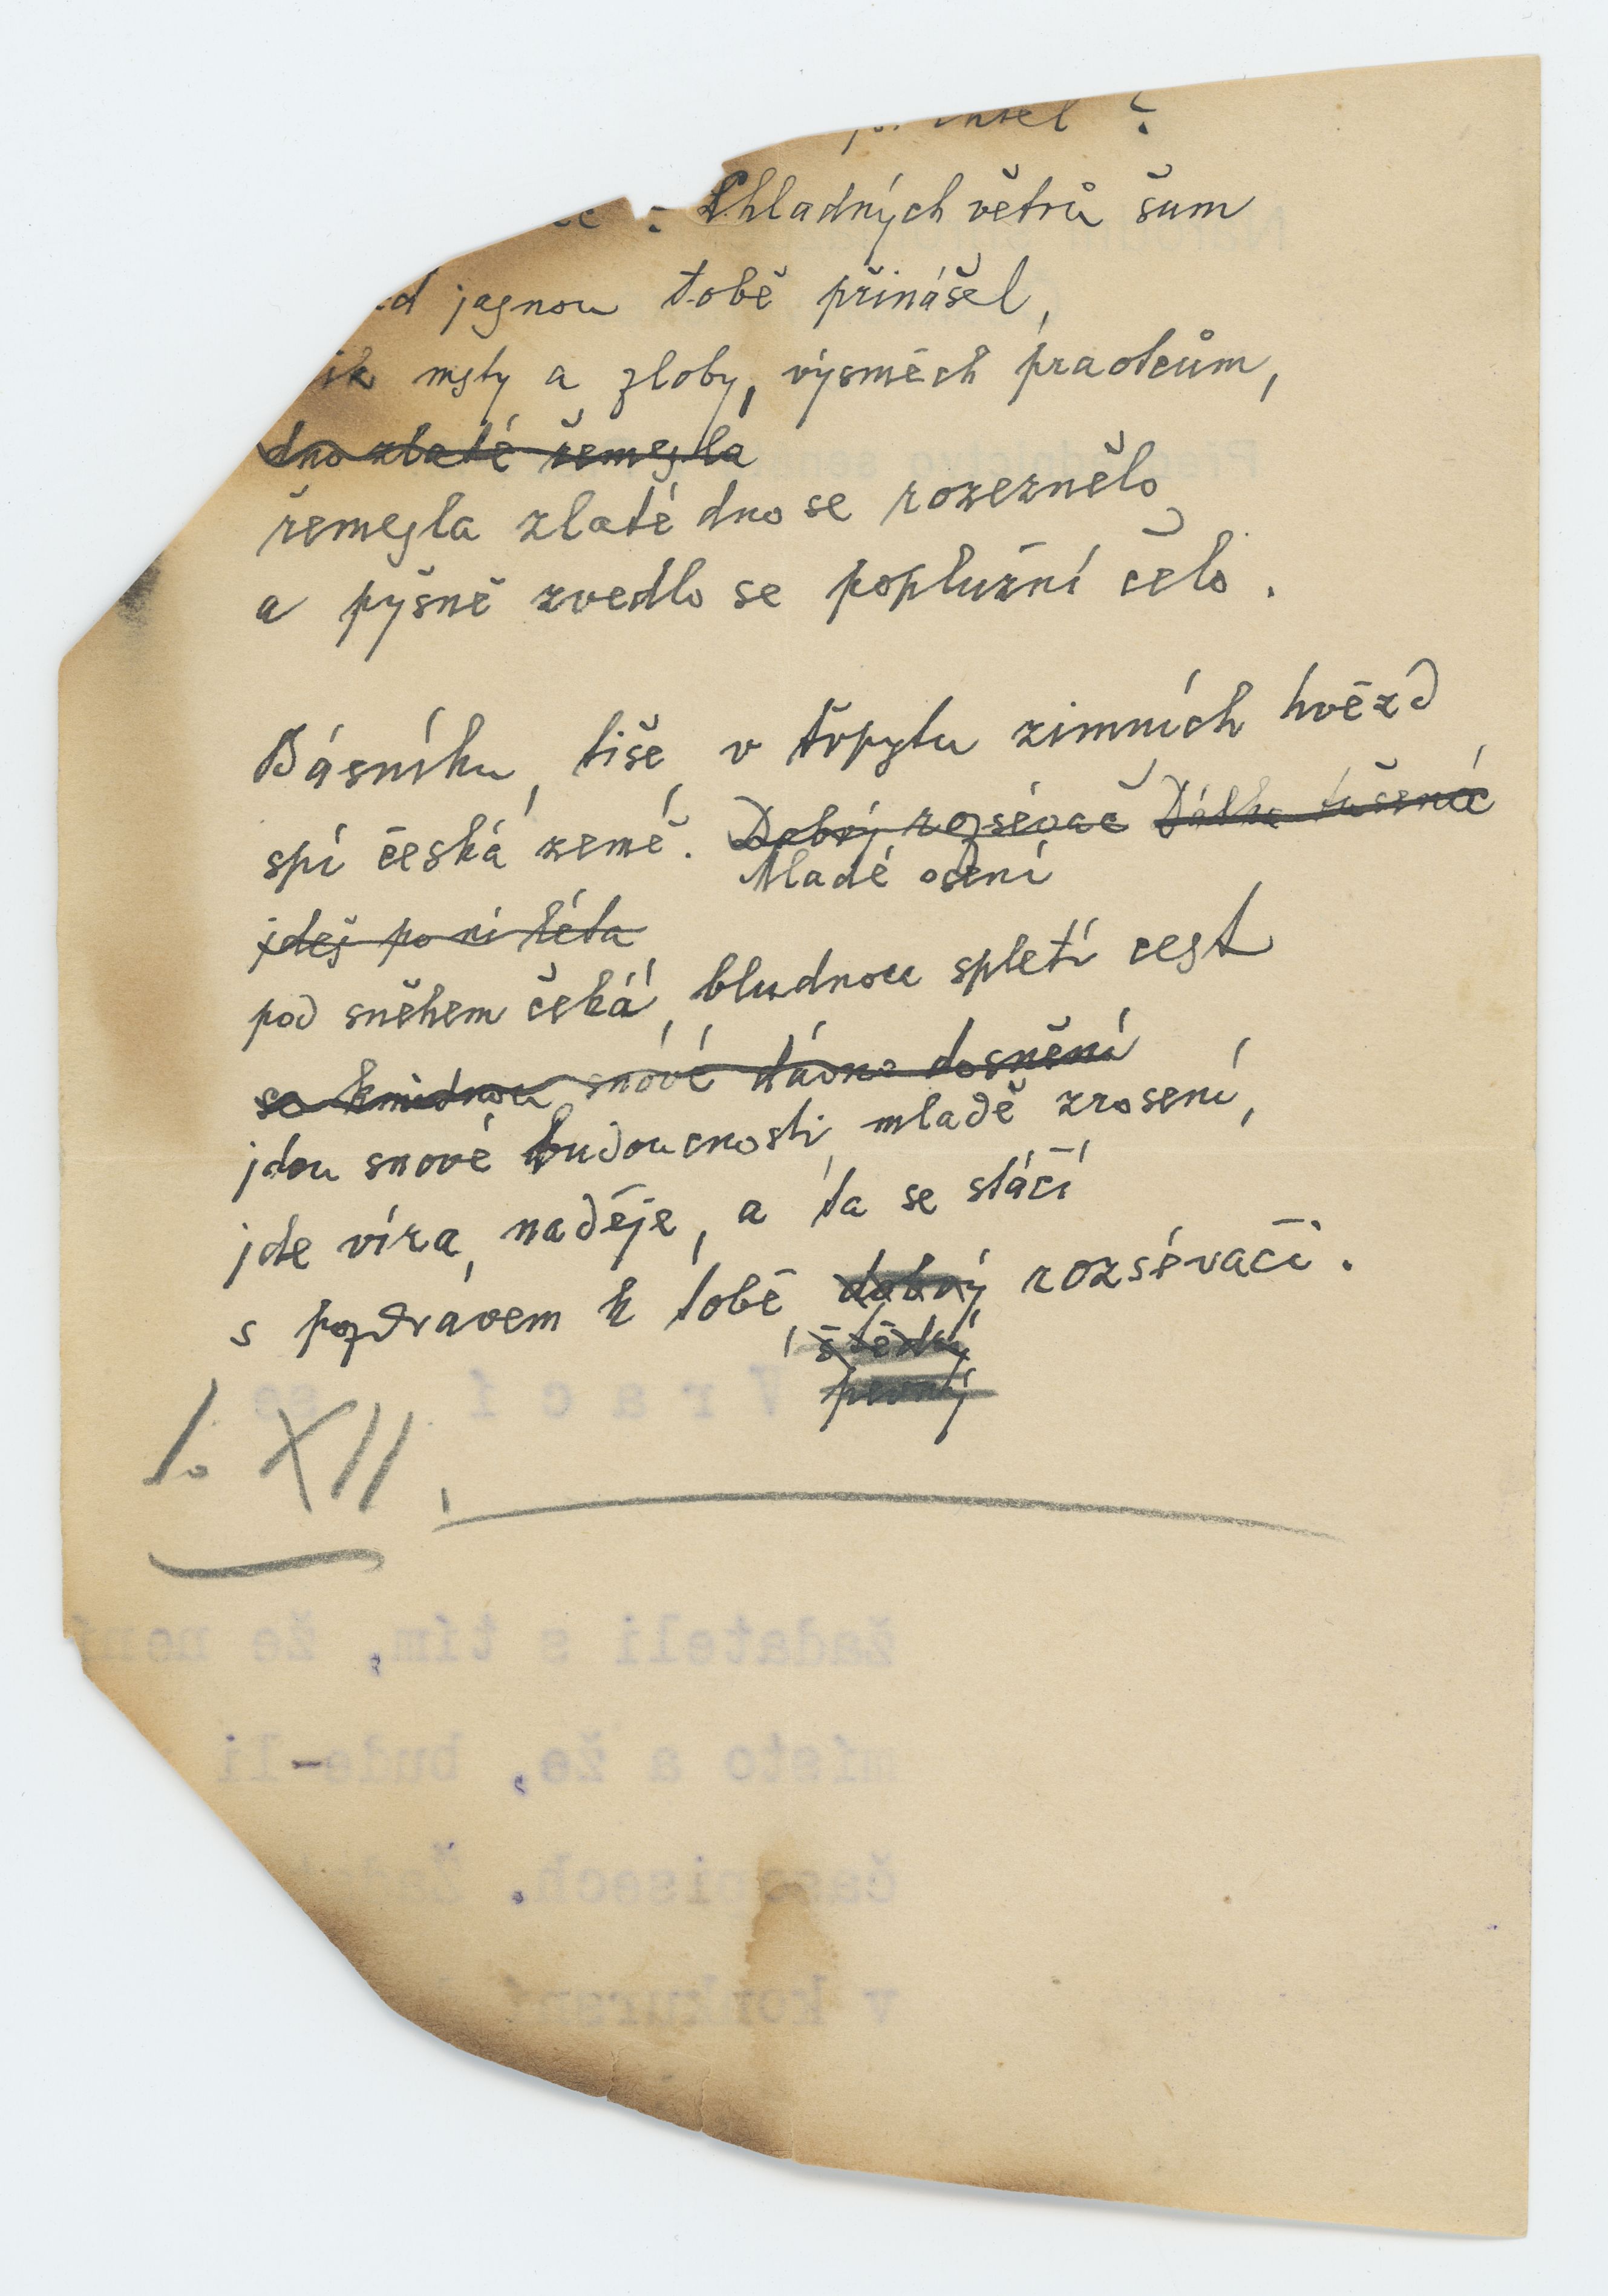 Chladných větrů šum
jasnou tobě přinášel,
msty a zloby, výsměch praotcům,
dno zlaté řemesla
řemesla zlaté dno se rozeznělo
a pyšně zvedlo se poplužní čelo.
Básníku, tiše, v třpytu zimních hvězd
spí česká země. Dobrý rozsévač Dálka tušená
Mladé osení
jdeš po ní léta
pod sněhem čeká, bludnou spletí cest
snové dávno dosnění
jdou snové budoucnosti, mladě zrosení,
jde víra, naděje, a ta se stáčí
s pozdravem k tobě, dobrý rozsévači.
štědrý
pevný
1. XII.
V r a c í se
žadateli s tím, že není
místo a že, bude-li
časopisech.
v konkursní